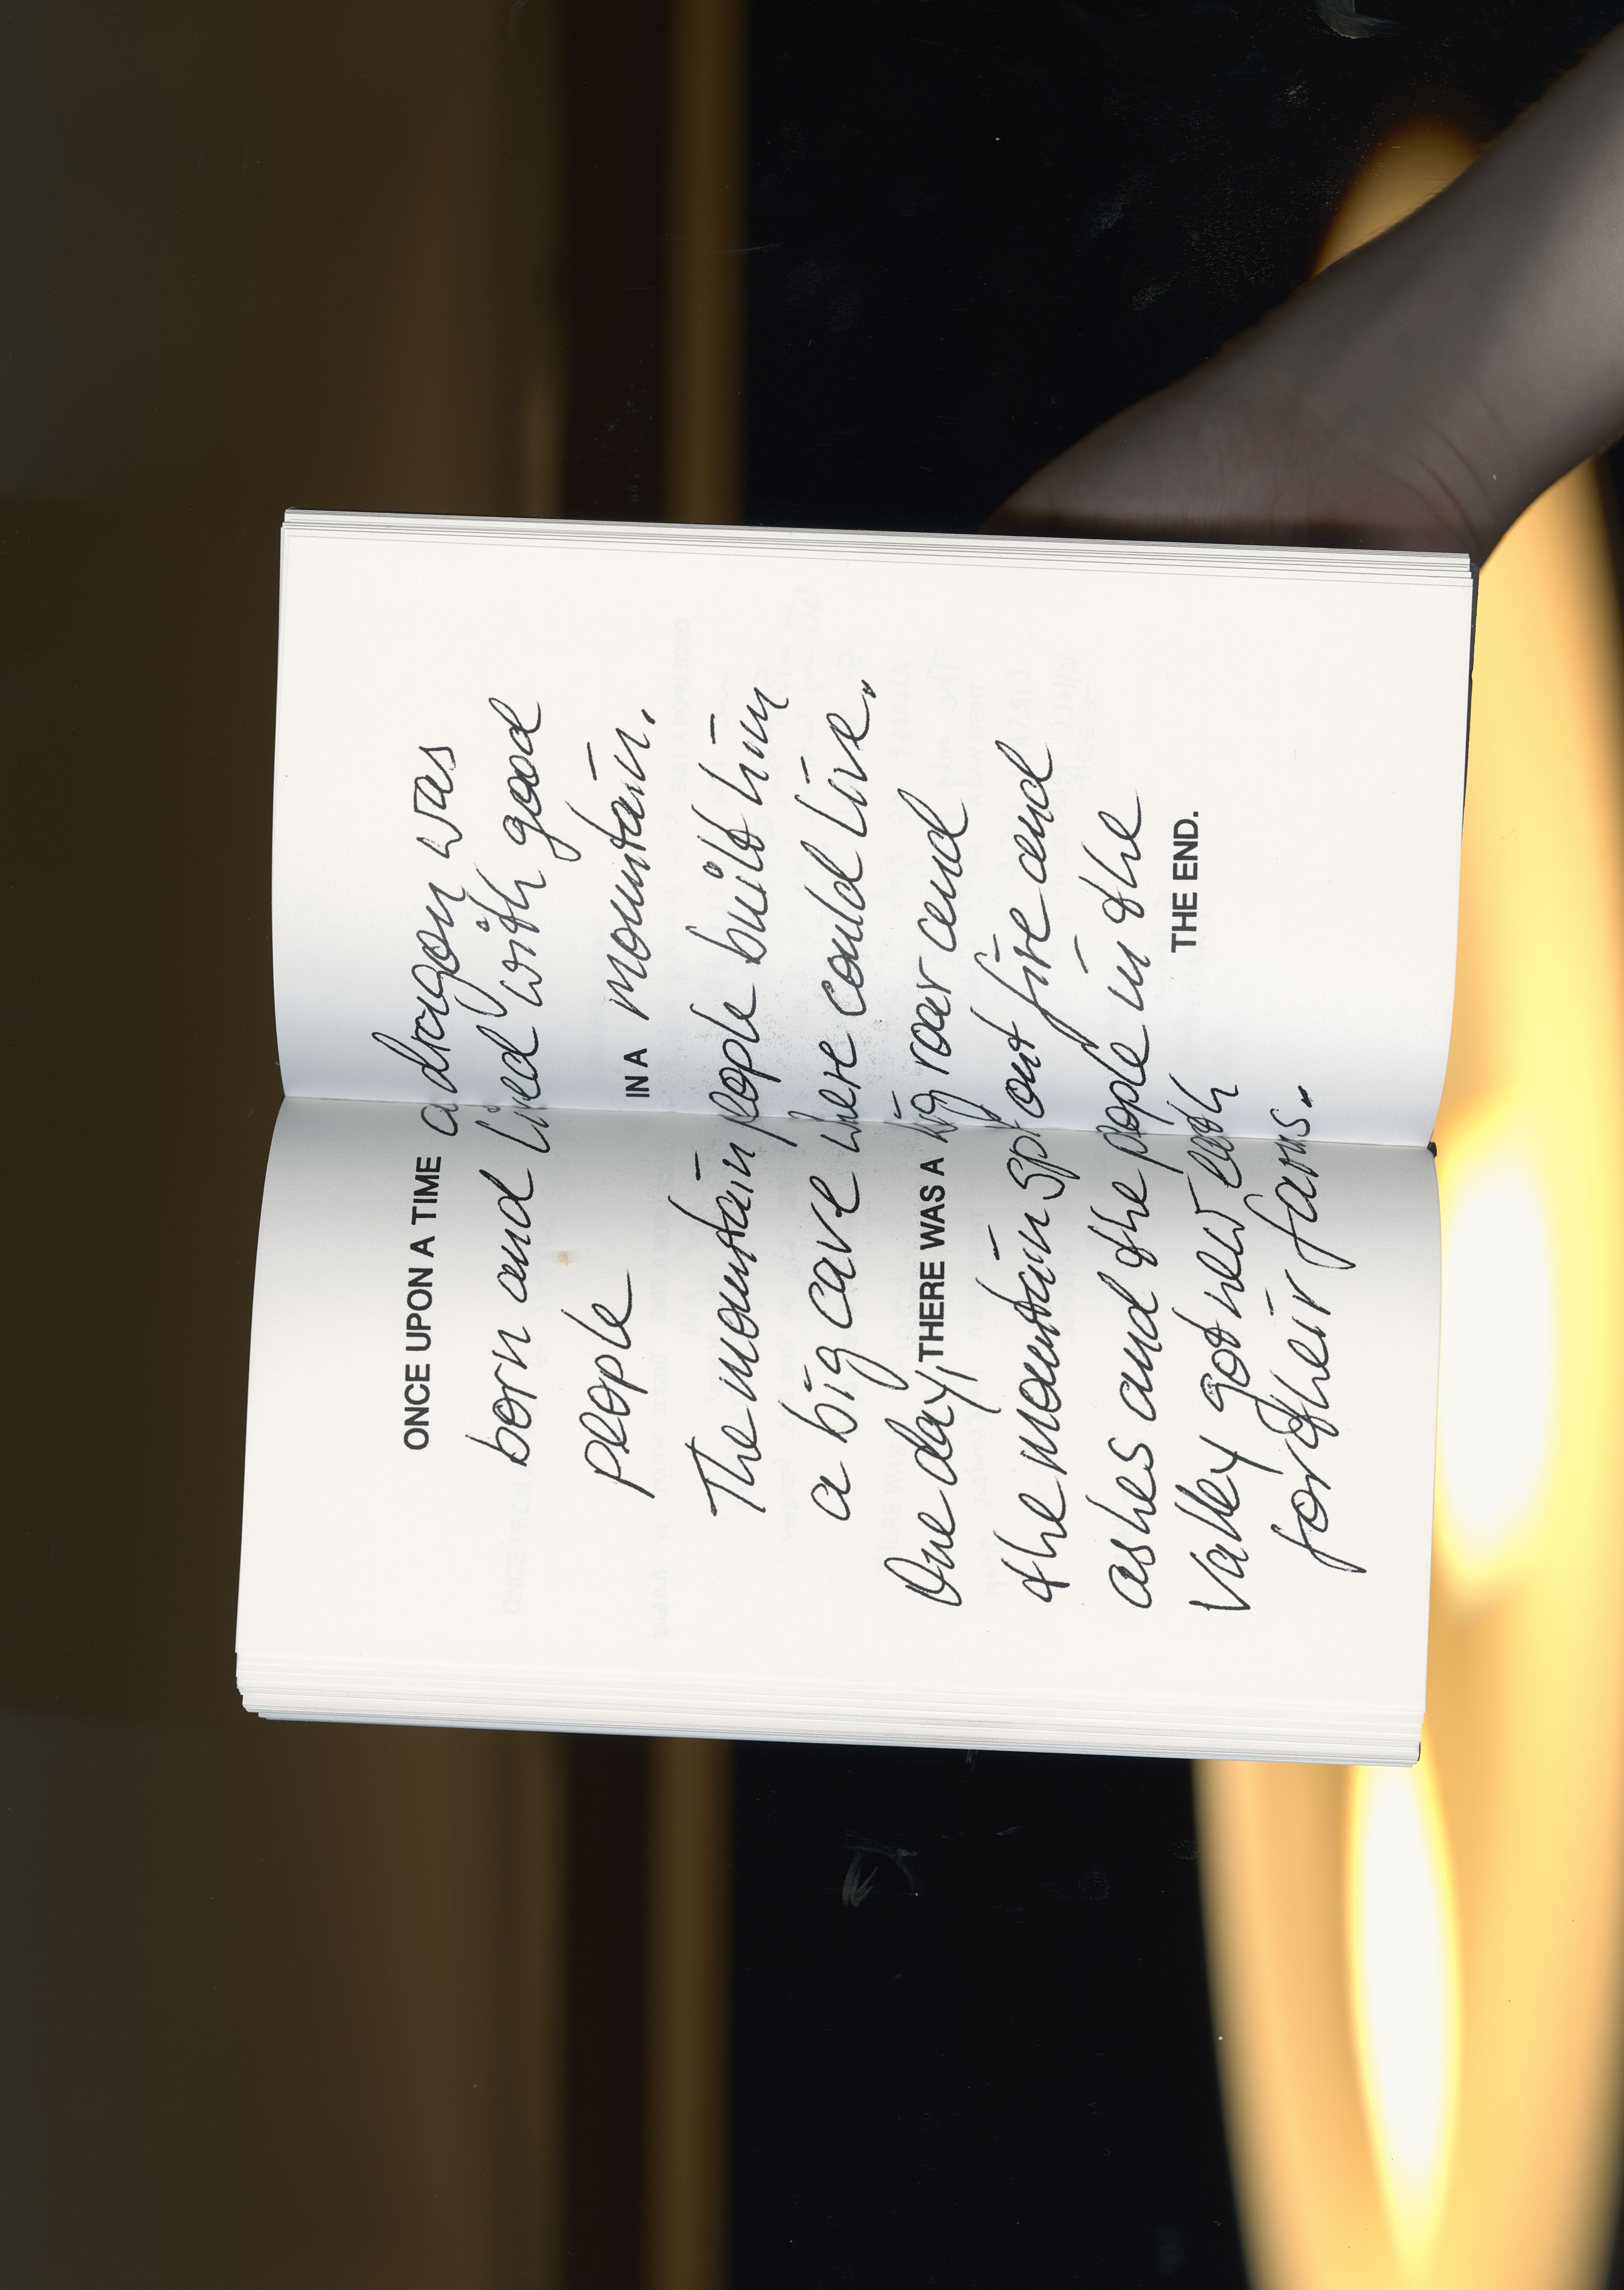 ONCE UPON A TIME a dragon was
born and lived with good
people IN A mountain.
The mountain people build him
a big cave where could live.
One day, THERE WAS A big roar and
the mountain spt out fire and
ashes and the people in the
valley got new eath
for their fams.
THE END.